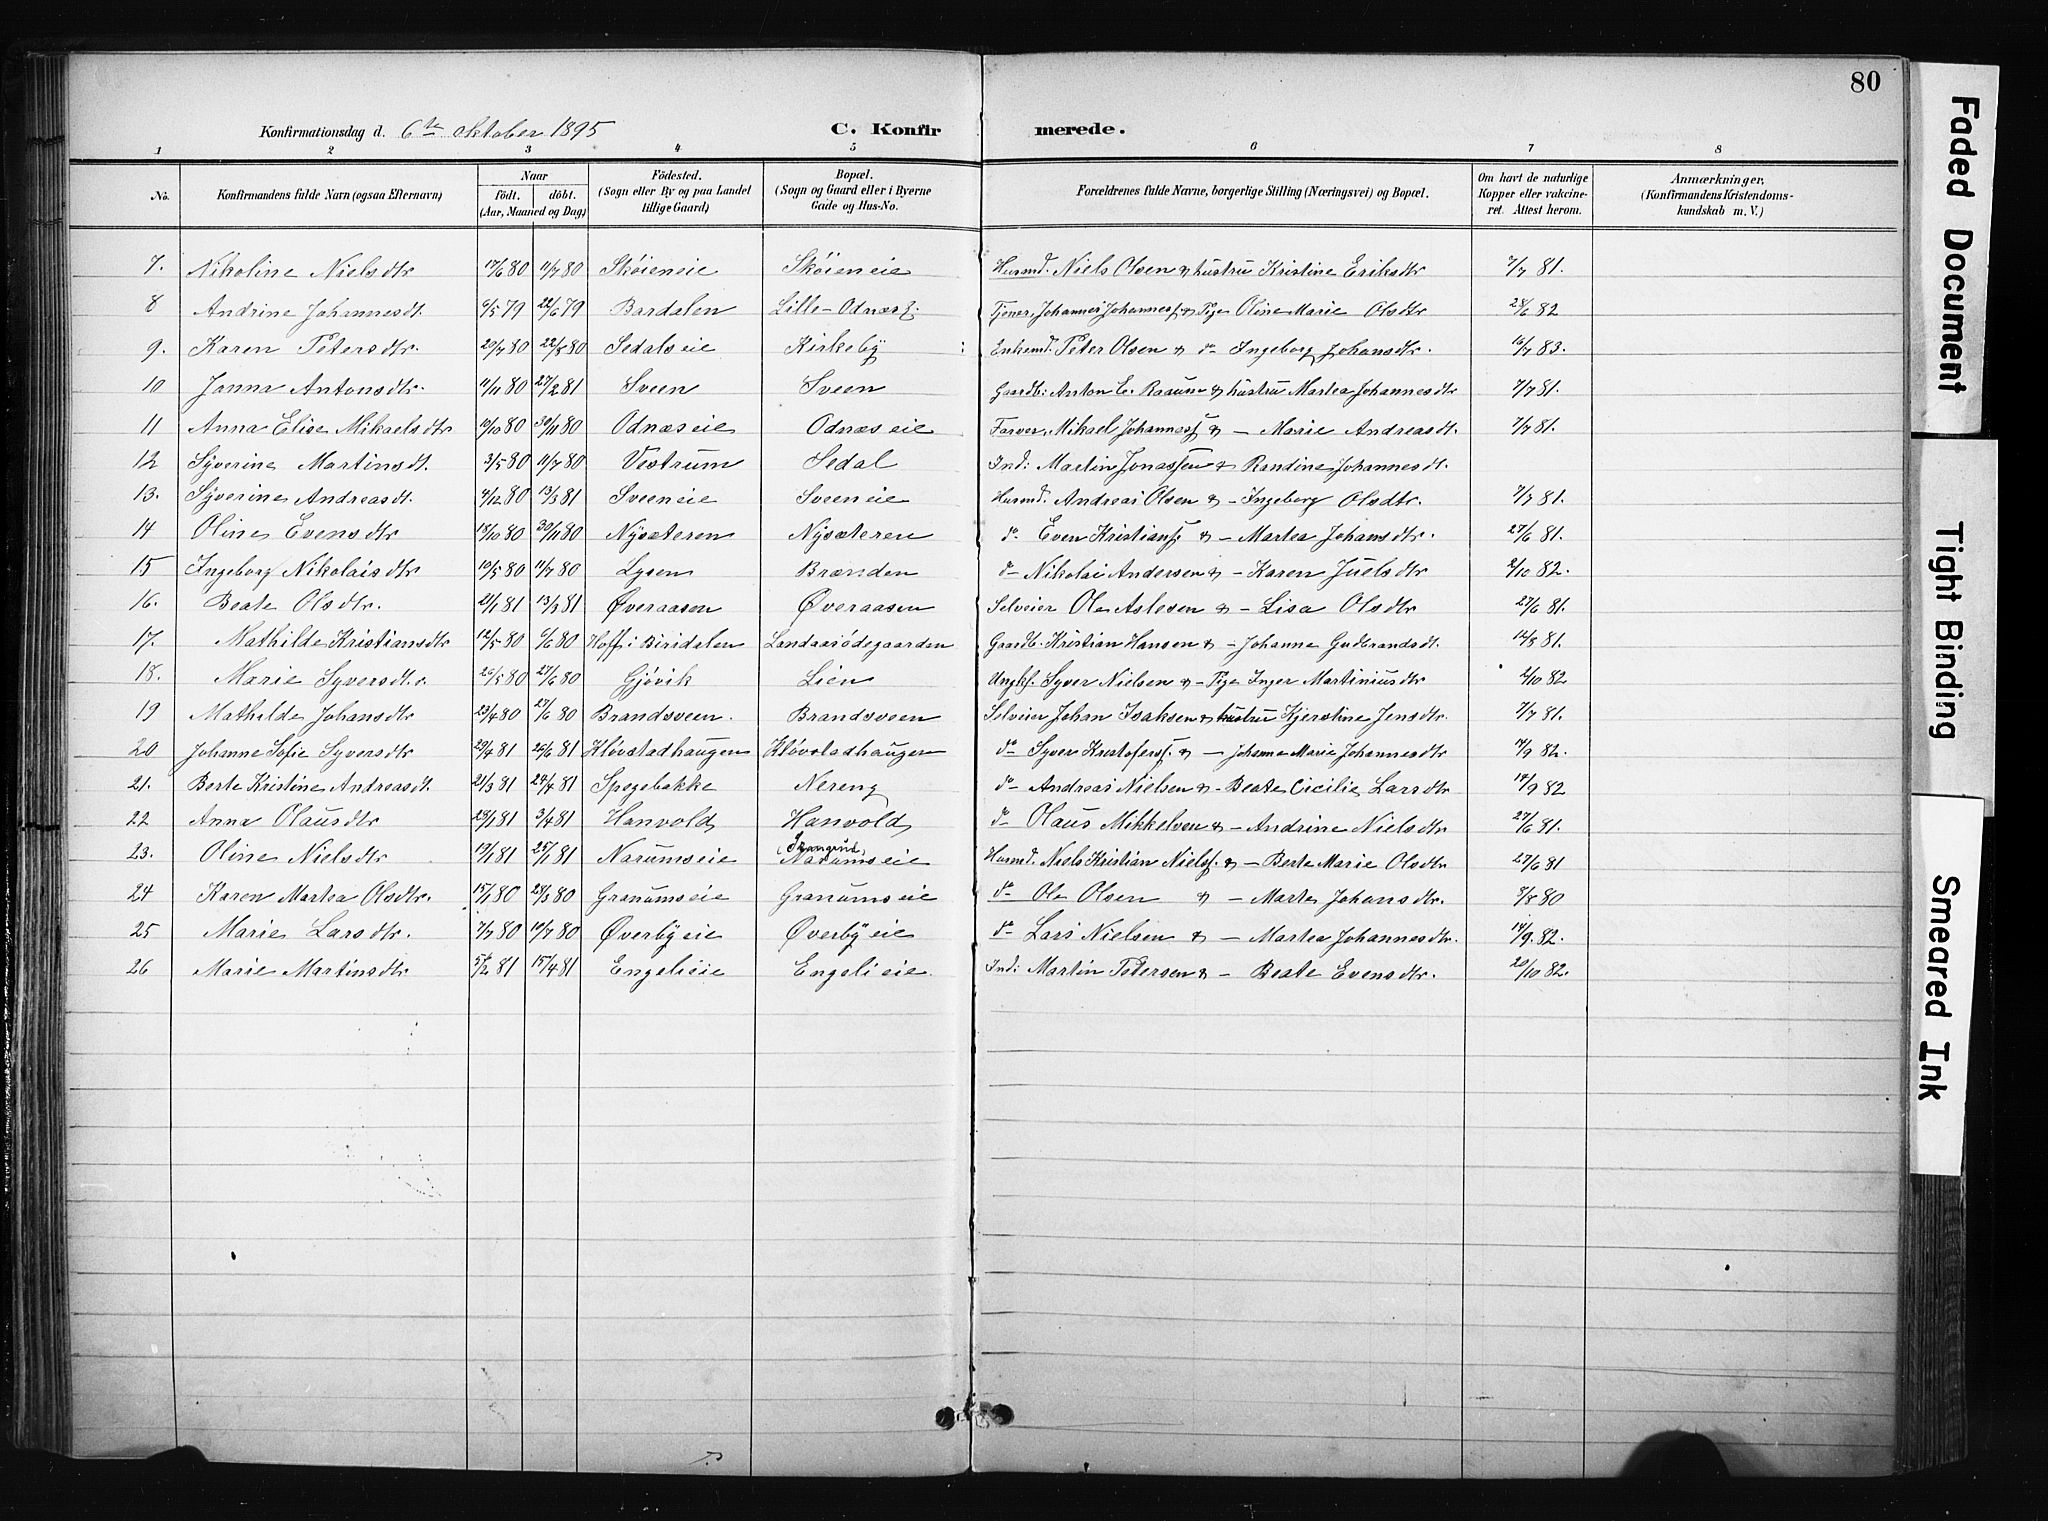 80
Konfirmationsdag d. 6te oktober 1895 C. Konfirmerede.
1 2 3 4 5 6 7 8
No. Konfirmandens fulde Navn (ogsaa Efternavn) Naar født. døbt. (Aar, Maaned og Dag) Fødested. (Sogn eller By og paa Landet tillige Gaard) Bopæl. (Sogn og Gaard eller i Byerne Gade og Hus-No. Forældrenes fulde Navne, borgerlige Stilling (Næringsvei) og Bopæl. Om havt de naturlige Kopper eller vakcineret. Attest herom. Anmærkninger, (Konfirmandens Kristendomskundskab m. V.)
7. Nikoline Nielsdtr 17/6 80 11/7 80 Skøieneie Skøieneie Husmd. Niels Olsen & hustru Kristine Eriksdtr 7/7 81.
8 Andrine Johannesdt. 6/5 79 22/6 79 Bardalen Lille-Odnæs Tjener, Johannes Johanness. & Pige Oline Marie Olsdtr 28/6 82
9. Karen Petersdtr. 20/7 80 22/8 80 Sedalseie Kirkeby Enkemd. Peter Olsen & do Ingeborg Johansdtr. 16/7 83.
10 Janna Antonsdtr. 11/11 80 27/2 81 Sveen Sveen Gaardb: Anton E. Raaum & hustru Martea Johannesdtr 7/7 81.
11 Anna Elise Mikaelsdtr 10/10 80 30/11 80 Odnæseie Odnæseie Farver, Mikael Johanness. & — Marie Andreasdt. 7/7 81.
12 Syverine Martinsdt. 3/5 80 11/7 80 Vestrum Sedal Ind: Martin Jonassen & Randine Johannesdt.
13. Syverine Andreasdt. 4/12 80 13/3 81 Sveeneie Sveeneie Husmd. Andreas Olsen & — Ingeborg Olsdtr. 7/7 81.
14 Oline Evensdtr 18/10 80 30/11 80 Nysæteren Nysæteren do Even Kristians. & — Martea Johansdtr. 27/6 81.
15 Ingeborg Nikolaisdtr 10/5 80 11/7 80 Lysen Brænden do Nikolai Andersen & — Karen Juelsdtr 2/10 82.
16. Beate Olsdtr. 21/1 81 13/3 81 Øveraasen Øveraasen Selveier Ole Aslesen & — Lisa Olsdtr 27/6 81.
17. Mathilde Kristiansdtr 12/5 80 6/6 80 Hoff i Biridalen Landaasødegaarden Gaardb. Kristian Hansen & — Johanne Gudbrandsdt. 14/8 81.
18. Marie Syversdtr. 26/5 80 27/6 80 Gjøvik Lien Ungkf. Syver Nielsen & — Pige Inger Martiniusdtr 2/10 82
19 Mathilde Johansdtr 23/4 80 27/6 80 Brandsveen. Brandsveen Selveier Johan Isaksen & hustru Kjerstine Jensdtr. 7/7 81.
20 Johanne Sofie Syversdtr 29/4 81 26/6 81 Kløvstadhaugen Kløvstadhaugen do Syver Kristofers. & — Johanne Marie Johannesdtr 14/9 82.
21. Berte Kristine Andreasdt. 21/3 81 24/4 81 Spegebakke Nereng do Andreas Nielsen & — Beate Cicilie Larsdtr 14/9 82
22 Anna Olausdtr 28/1 81 3/4 81 Hanvold Hanvold do Olaus Mikkelsen & — Andrine Nielsdtr 27/6 81.
23. Oline Nielsdtr 19/1 81 25/1 81 Narumseie Narumseie Husmd. Niels Kristian Nielss. & — Berte Marie Olsdtr 27/6 81
24 Karen Martea Olsdtr. 15/1 80 28/3 80 Granumseie Granumseie do Ole Olsen & — Marte Johansdtr. 8/8 80
25 Marie Larsdtr. 7/7 80 18/7 80 Øverbyeie Øverbyeie do Lars Nielsen & — Martea Johannesdtr. 14/9 82.
26 Marie Martinsdtr 5/2 81 15/4 81 Engelieie Engelieie. Ind: Martin Petersen & — Beate Evensdtr. 20/10 82.
Faded Document
Tight Binding
Smeared Ink